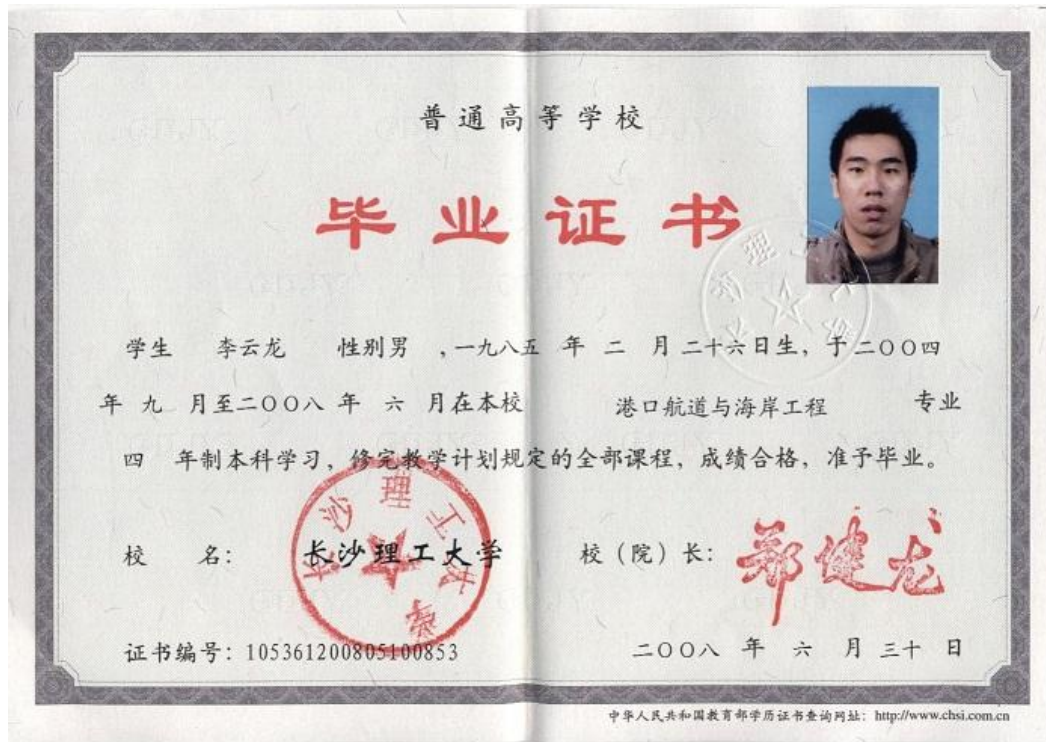 普通高等学校
毕业证书
学生 李云龙 性别男 ，一九八五 年 二 月 二十六日生，于二〇〇四
年 九 月至二〇〇八 年 六 月在本校 港口航道与海岸工程 专业
四 年制本科学习，修完教学计划规定的全部课程，成绩合格，准予毕业。
校 名： 长沙理工大学 校（院）长： 郑健龙
长沙理工大学
证书编号：105361200805100853 二〇〇八 年 六 月 三十 日
中华人民共和国教育部学历证书查询网址：http://www.chsi.com.cn